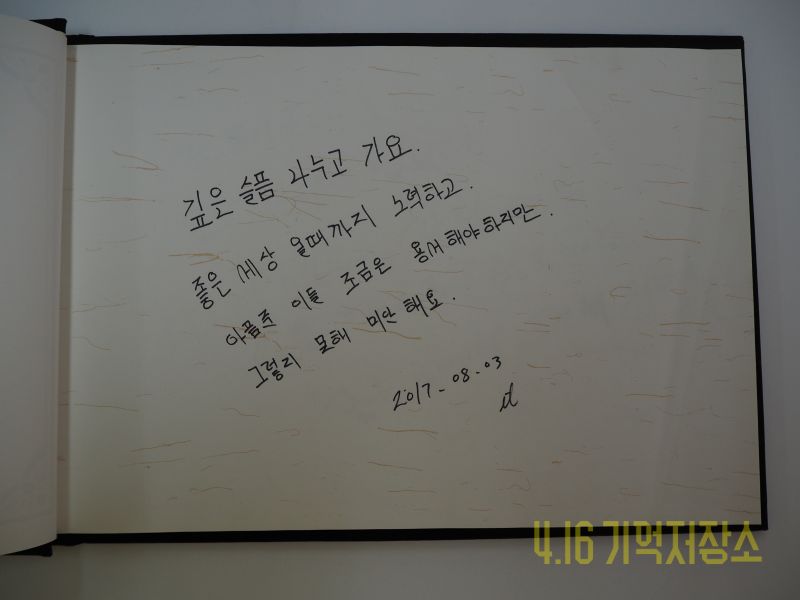 깊은 슬픔 나누고 가요.
좋은 세상 올때까지 노력하고.
아픔준 이들 조금은 용서해야하지만.
그렇지 못해 미안해요.
2017-08-03
4.16 기억저장소